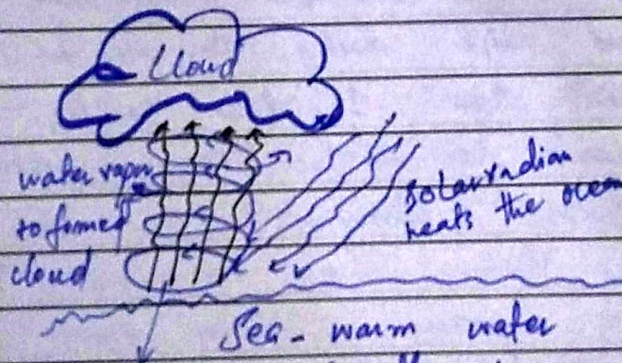 Cloud
water vapor
to formed
cloud
solar radian
heats the ocean
Sea - warm water